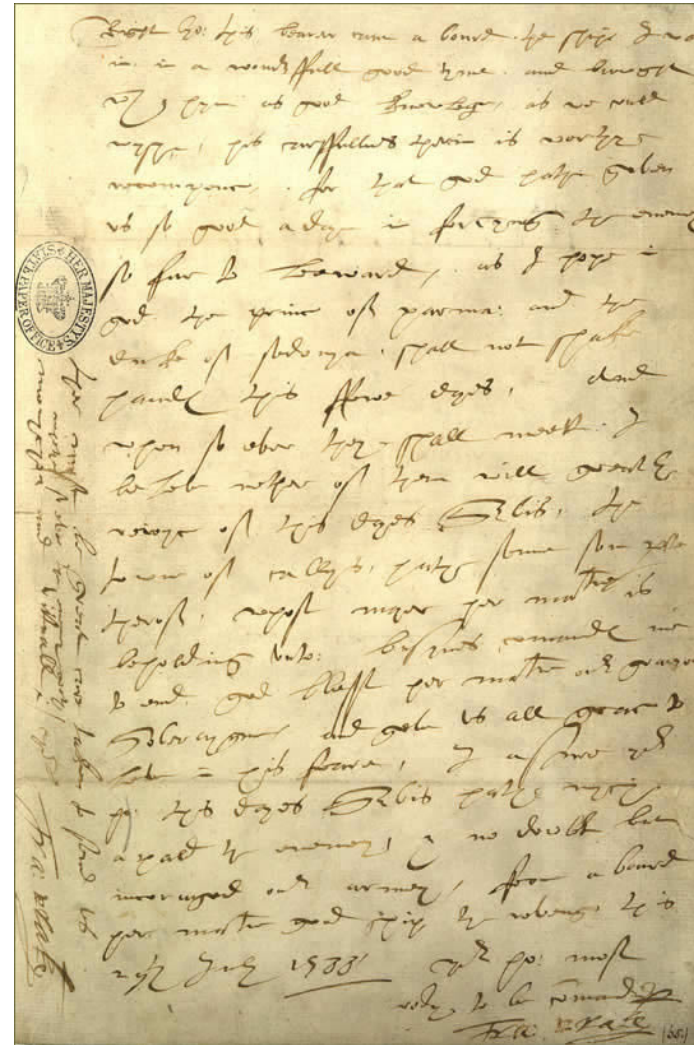 Right ho: this bearer cam a bourd the ship I was
in in a wondrffull good tyme and brought
with hym as good knowlege as we could
wyshe, his carffullnes therin is worthye
recompence, for that god hathe geven
us so good a daye in forcyng the enemy
so far to leeward, as I hope in
god the prince of parma and the
duke of sedonya shall not shake
hands this ffewe dayes, And
when so ever they shall meet, I
beleve nether of them will greatly
reioyce of this dayes Servis, the
towne of Callys hathe seene some parte
therof, whose mayer her matie is
beholding unto: Busynes comands me
to end. god bless her matie our gracyous
Soveraygne and geve us all grace to
leve in his feare, I assure your
ho: this dayes servis hath mych
apald the enemey, & no doubt but
incoraged our armey, from a bourd
her maties good ship the revenge this
29th July 1588
your ho: most
redy to be comanded
Fra: Drake
ther must be great care taken to send us
monycyon and vittuall
whether so ever the enemey
Fra: Drake
HER MAJESTY'S
STATE PAPER OFFICE